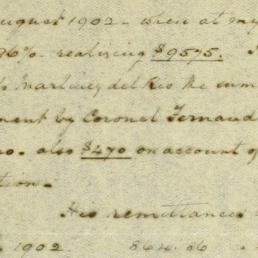 August 1902 - when at my
96% realizing $9575.
Martinez del Rio the sum
ment by Coronel Fernand
no. also $470 on account of
tion.
His remittances
1902. 844.06